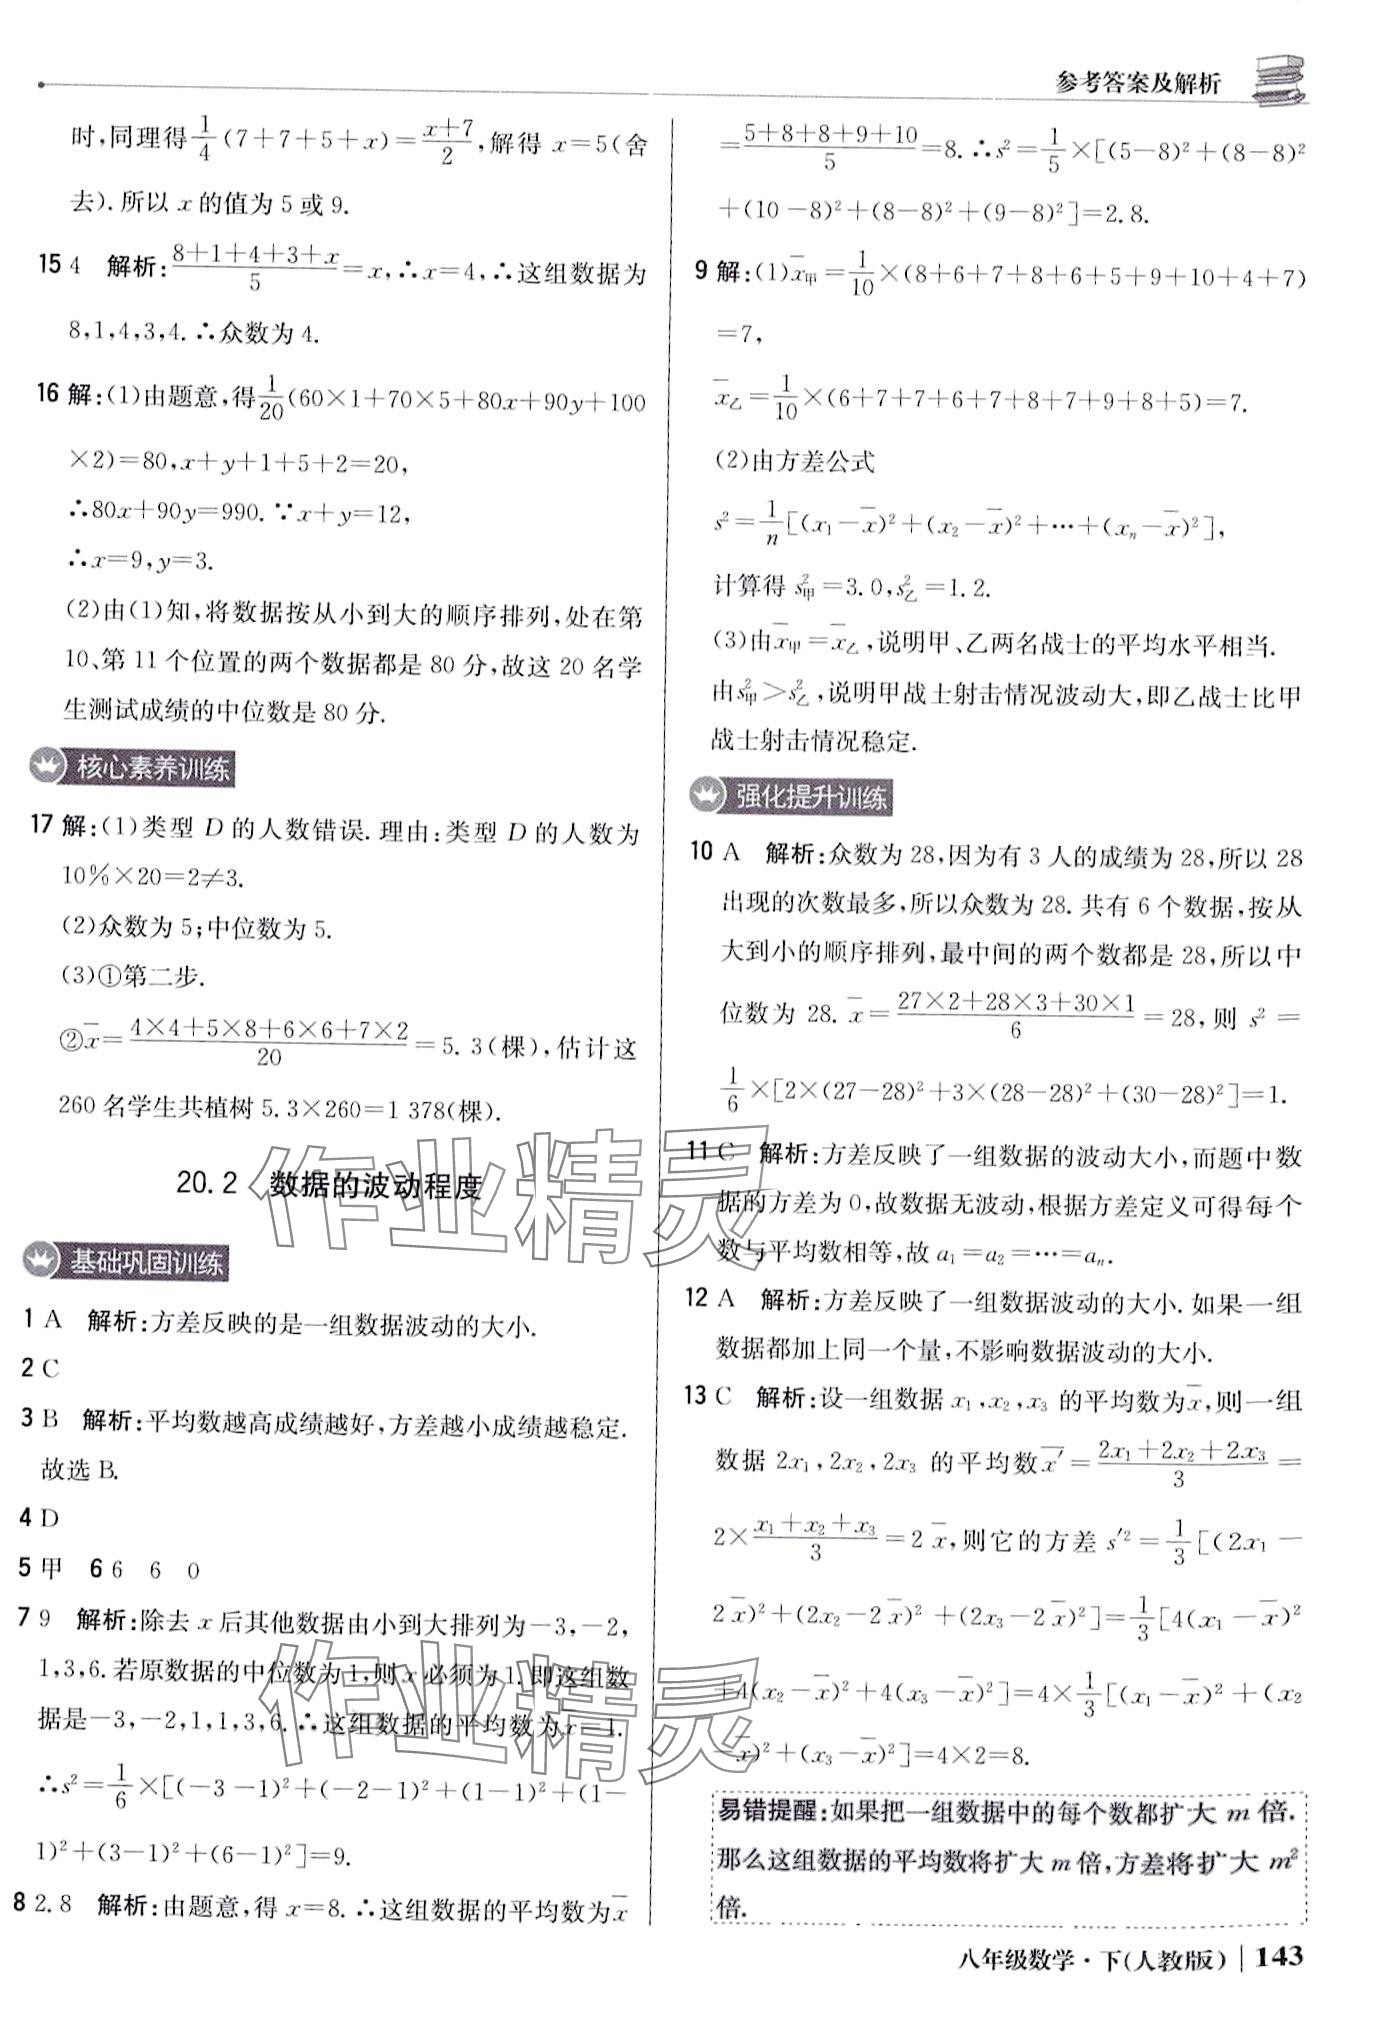 参考答案及解析
时,同理得1/4(7+7+5+x)=(x+7)/2,解得 x=5(舍
去).所以 x 的值为 5 或 9.
15 4 解析:(8+1+4+3+x)/5=x,∴x=4,∴这组数据为
8,1,4,3,4.∴众数为 4.
16 解:(1)由题意,得1/20(60×1+70×5+80x+90y+100
×2)=80,x+y+1+5+2=20,
∴80x+90y=990.∵x+y=12,
∴x=9,y=3.
(2)由(1)知,将数据按从小到大的顺序排列,处在第
10、第 11 个位置的两个数据都是 80 分,故这 20 名学
生测试成绩的中位数是 80 分.
核心素养训练
17 解:(1)类型 D 的人数错误.理由:类型 D 的人数为
10%×20=2≠3.
(2)众数为 5;中位数为 5.
(3)①第二步.
②x̄=(4×4+5×8+6×6+7×2)/20=5.3(棵),估计这
260 名学生共植树 5.3×260=1 378(棵).
20.2 数据的波动程度
基础巩固训练
1 A 解析:方差反映的是一组数据波动的大小.
2 C
3 B 解析:平均数越高成绩越好,方差越小成绩越稳定.
故选 B.
4 D
5 甲 6 6 6 0
7 9 解析:除去 x 后其他数据由小到大排列为-3,-2,
1,3,6.若原数据的中位数为 1,则 x 必须为 1.即这组数
据是-3,-2,1,1,3,6.∴这组数据的平均数为x̄=1.
∴s²=1/6×[(-3-1)²+(-2-1)²+(1-1)²+(1-
1)²+(3-1)²+(6-1)²]=9.
8 2.8 解析:由题意,得 x=8.∴这组数据的平均数为x̄
=(5+8+8+9+10)/5=8.∴s²=1/5×[(5-8)²+(8-8)²
+(10-8)²+(8-8)²+(9-8)²]=2.8.
9 解:(1)x̄甲=1/10×(8+6+7+8+6+5+9+10+4+7)
=7,
x̄乙=1/10×(6+7+7+6+7+8+7+9+8+5)=7.
(2)由方差公式
s²=1/n[(x₁-x̄)²+(x₂-x̄)²+…+(xₙ-x̄)²],
计算得 s²甲=3.0,s²乙=1.2.
(3)由x̄甲=x̄乙,说明甲、乙两名战士的平均水平相当.
由s²甲>s²乙,说明甲战士射击情况波动大,即乙战士比甲
战士射击情况稳定.
强化提升训练
10 A 解析:众数为 28,因为有 3 人的成绩为 28,所以 28
出现的次数最多,所以众数为 28.共有 6 个数据,按从
大到小的顺序排列,最中间的两个数都是 28,所以中
位数为 28.x̄=(27×2+28×3+30×1)/6=28,则 s²=
1/6×[2×(27-28)²+3×(28-28)²+(30-28)²]=1.
11 C 解析:方差反映了一组数据的波动大小,而题中数
据的方差为 0,故数据无波动,根据方差定义可得每个
数与平均数相等,故 a₁=a₂=…=aₙ.
12 A 解析:方差反映了一组数据波动的大小.如果一组
数据都加上同一个量,不影响数据波动的大小.
13 C 解析:设一组数据 x₁,x₂,x₃ 的平均数为x̄,则一组
数据 2x₁,2x₂,2x₃ 的平均数x̄′=(2x₁+2x₂+2x₃)/3=
2×(x₁+x₂+x₃)/3=2x̄,则它的方差 s′²=1/3[(2x₁-
2x̄)²+(2x₂-2x̄)²+(2x₃-2x̄)²]=1/3[4(x₁-x̄)²
+4(x₂-x̄)²+4(x₃-x̄)²]=4×1/3[(x₁-x̄)²+(x₂
-x̄)²+(x₃-x̄)²]=4×2=8.
易错提醒:如果把一组数据中的每个数都扩大 m 倍.
那么这组数据的平均数将扩大 m 倍,方差将扩大 m²
倍.
八年级数学·下(人教版) 143
作业精灵
作业精灵